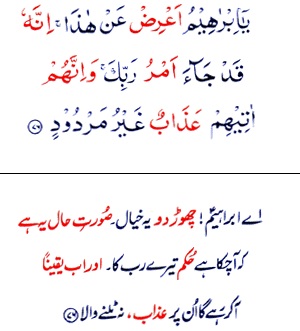 يٰٓاِبْرٰهِيْمُ اَعْرِضْ عَنْ هٰذَا ۚ اِنَّهٗ
قَدْ جَآءَ اَمْرُ رَبِّكَ ۚ وَاِنَّهُمْ
اٰتِيْهِمْ عَذَابٌ غَيْرُ مَرْدُوْدٍ ﴿۷۶﴾
اے ابراہیمؑ! چھوڑ دو یہ خیال۔ صُورتِ حال یہ ہے
کہ آچکا ہے حُکم تیرے رب کا۔ اور اب یقیناً
آکر رہے گا اُن پر عذاب، نہ ٹلنے والا ﴿۷۶﴾